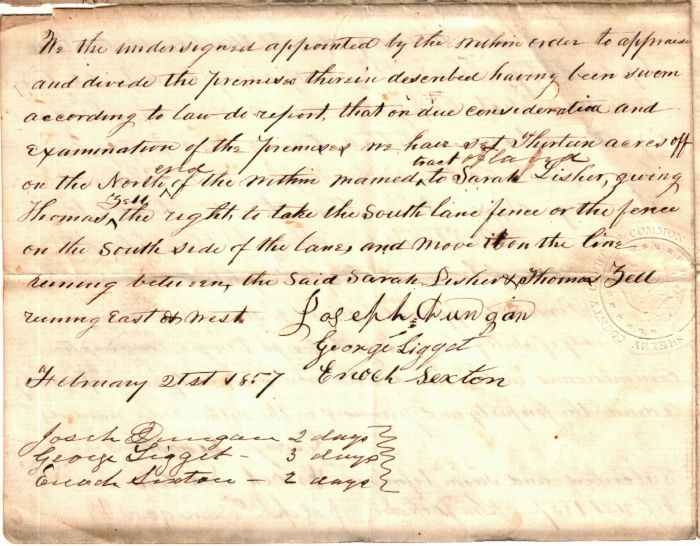 We the undersigned appointed by the within order to appraise
and divide the premises therein described having been sworn
according to law do report, that on due consideration and
examination of the premises we have set Thirteen acres off
on the North end of the within named tract of land to Sarah Lisher, giving
Thomas Zell the right to take the South lane fence or the fence
on the South side of the lane, and move it on the line
runing between, the said Sarah Lisher & Thomas Zell
runing East & West.
Joseph Dungan
George Ligget
February 21st 1857 Enoch Sexton
Joseh Dungan 2 days
George Ligget - 3 days
Enoch Sixton - 2 days
COMMON
SHELBY COUNTY